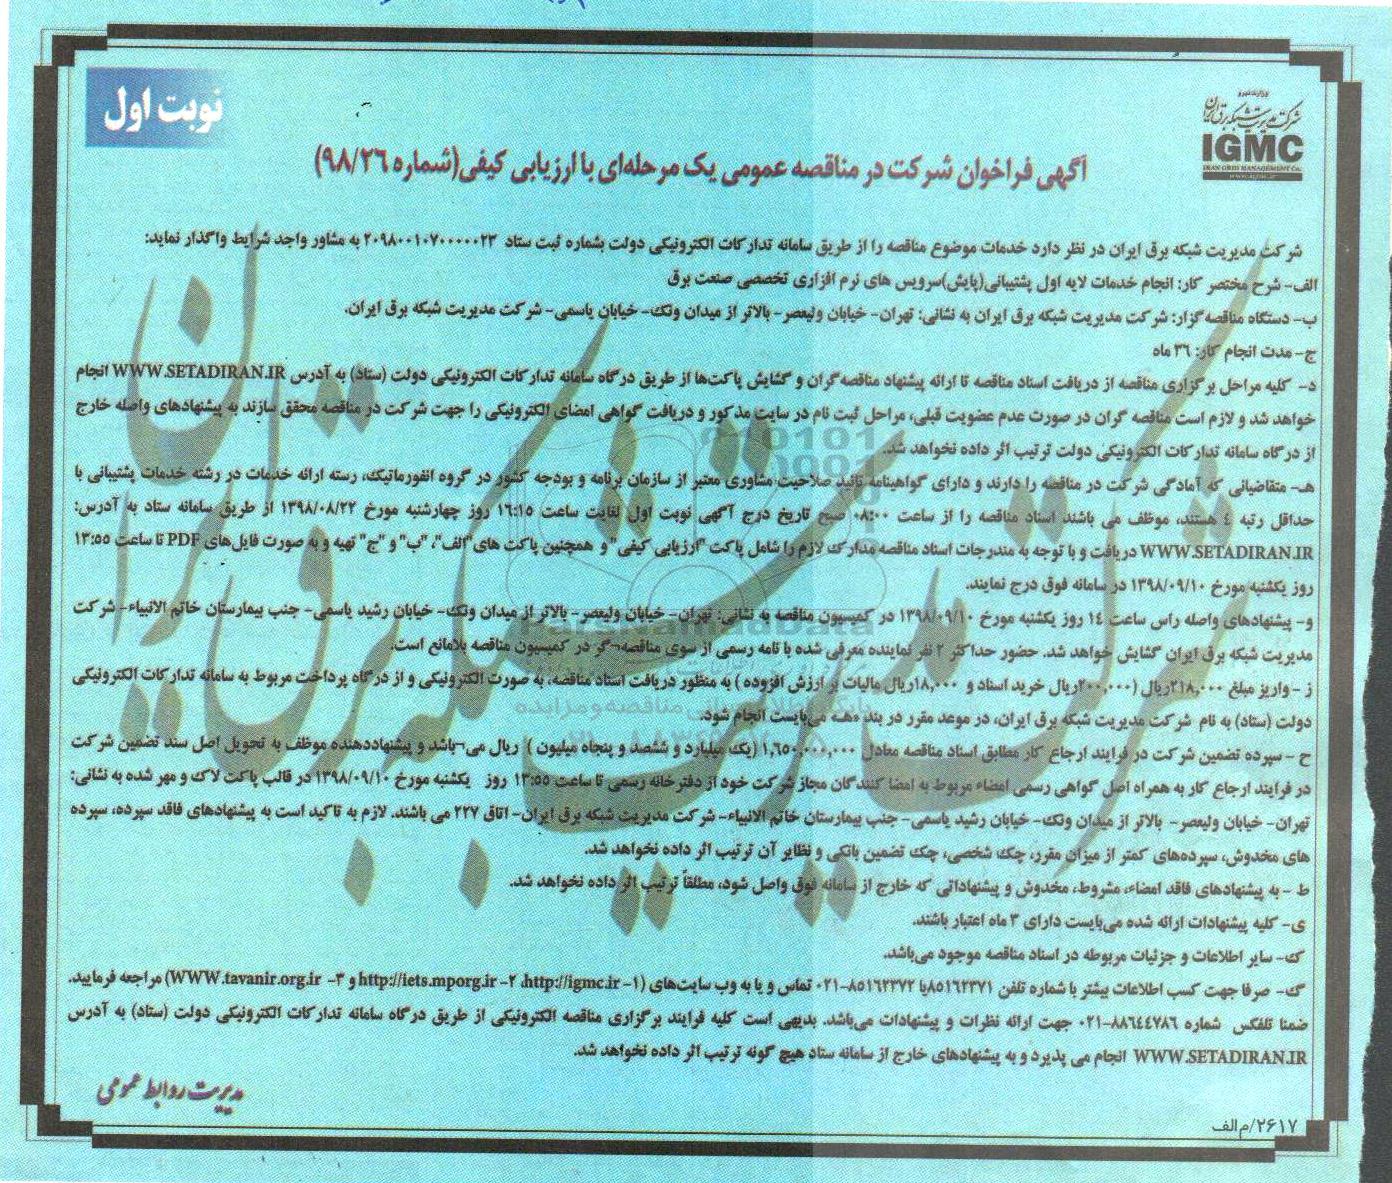 نوبت اول
وزارت نیرو
شرکت مدیریت شبکه برق ایران
IGMC
IRAN GRID MANAGEMENT Co.
آگهی فراخوان شرکت در مناقصه عمومی یک مرحله‌ای با ارزیابی کیفی(شماره ۹۸/۲۶)
شرکت مدیریت شبکه برق ایران در نظر دارد خدمات موضوع مناقصه را از طریق سامانه تدارکات الکترونیکی دولت بشماره ثبت ستاد ۲۰۹۸۰۰۱۰۷۰۰۰۰۰۲۳ به مشاور واجد شرایط واگذار نماید:
الف- شرح مختصر کار: انجام خدمات لایه اول پشتیبانی(پایش)سرویس های نرم افزاری تخصصی صنعت برق
ب- دستگاه مناقصه‌گزار: شرکت مدیریت شبکه برق ایران به نشانی: تهران- خیابان ولیعصر- بالاتر از میدان ونک- خیابان یاسمی- شرکت مدیریت شبکه برق ایران.
ج- مدت انجام کار: ۳۶ ماه
د- کلیه مراحل برگزاری مناقصه از دریافت اسناد مناقصه تا ارائه پیشنهاد مناقصه‌گران و گشایش پاکت‌ها از طریق درگاه سامانه تدارکات الکترونیکی دولت (ستاد) به آدرس WWW.SETADIRAN.IR انجام
خواهد شد و لازم است مناقصه گران در صورت عدم عضویت قبلی، مراحل ثبت نام در سایت مذکور و دریافت گواهی امضای الکترونیکی را جهت شرکت در مناقصه محقق سازند به پیشنهادهای واصله خارج
از درگاه سامانه تدارکات الکترونیکی دولت ترتیب اثر داده نخواهد شد.
هـ- متقاضیانی که آمادگی شرکت در مناقصه را دارند و دارای گواهینامه تائید صلاحیت مشاوری معتبر از سازمان برنامه و بودجه کشور در گروه انفورماتیک، رسته ارائه خدمات در رشته خدمات پشتیبانی با
حداقل رتبه ٤ هستند، موظف می باشند اسناد مناقصه را از ساعت ۰۸:۰۰ صبح تاریخ درج آگهی نوبت اول لغایت ساعت ۱۶:۱۵ روز چهارشنبه مورخ ۱۳۹۸/۰۸/۲۲ از طریق سامانه ستاد به آدرس:
WWW.SETADIRAN.IR دریافت و با توجه به مندرجات اسناد مناقصه مدارک لازم را شامل پاکت "ارزیابی کیفی" و همچنین پاکت های"الف"، "ب" و "ج" تهیه و به صورت فایل‌های PDF تا ساعت ۱۳:۵۵
روز یکشنبه مورخ ۱۳۹۸/۰۹/۱۰ در سامانه فوق درج نمایند.
و- پیشنهادهای واصله راس ساعت ۱۴ روز یکشنبه مورخ ۱۳۹۸/۰۹/۱۰ در کمیسیون مناقصه به نشانی: تهران- خیابان ولیعصر- بالاتر از میدان ونک- خیابان رشید یاسمی- جنب بیمارستان خاتم الانبیاء- شرکت
مدیریت شبکه برق ایران گشایش خواهد شد. حضور حداکثر ۲ نفر نماینده معرفی شده با نامه رسمی از سوی مناقصه¬گر در کمیسیون مناقصه بلامانع است.
ز -واریز مبلغ ۲۱۸,۰۰۰ریال (۲۰۰,۰۰۰ریال خرید اسناد و ۱۸,۰۰۰ریال مالیات بر ارزش افزوده ) به منظور دریافت اسناد مناقصه، به صورت الکترونیکی و از درگاه پرداخت مربوط به سامانه تدارکات الکترونیکی
دولت (ستاد) به نام شرکت مدیریت شبکه برق ایران، در موعد مقرر در بند «هـ» می‌بایست انجام شود.
ح - سپرده تضمین شرکت در فرایند ارجاع کار مطابق اسناد مناقصه معادل ۱,٦۵۰,۰۰۰,۰۰۰ (یک میلیارد و ششصد و پنجاه میلیون ) ریال می¬باشد و پیشنهاددهنده موظف به تحویل اصل سند تضمین شرکت
در فرایند ارجاع کار به همراه اصل گواهی رسمی امضاء مربوط به امضا کنندگان مجاز شرکت خود از دفترخانه رسمی تا ساعت ۱۳:۵۵ روز یکشنبه مورخ ۱۳۹۸/۰۹/۱۰ در قالب پاکت لاک و مهر شده به نشانی:
تهران- خیابان ولیعصر- بالاتر از میدان ونک- خیابان رشید یاسمی- جنب بیمارستان خاتم الانبیاء- شرکت مدیریت شبکه برق ایران- اتاق ۲۲۷ می باشند. لازم به تاکید است به پیشنهادهای فاقد سپرده، سپرده
های مخدوش، سپرده‌های کمتر از میزان مقرر، چک شخصی، چک تضمین بانکی و نظایر آن ترتیب اثر داده نخواهد شد.
ط - به پیشنهادهای فاقد امضاء، مشروط، مخدوش و پیشنهاداتی که خارج از سامانه فوق واصل شود، مطلقاً ترتیب اثر داده نخواهد شد.
ی- کلیه پیشنهادات ارائه شده می‌بایست دارای ۳ ماه اعتبار باشند.
ک- سایر اطلاعات و جزئیات مربوطه در اسناد مناقصه موجود می‌باشد.
گ- صرفا جهت کسب اطلاعات بیشتر با شماره تلفن ۸۵۱۶۲۳۷۱یا ۸۵۱۶۲۳۷۲-۰۲۱ تماس و یا به وب سایت‌های (۱- http://igmc.ir، ۲- http://iets.mporg.ir و ۳- WWW.tavanir.org.ir) مراجعه فرمایید.
ضمنا تلفکس شماره ۸۸٦٤٤۷۸٦-۰۲۱ جهت ارائه نظرات و پیشنهادات می‌باشد. بدیهی است کلیه فرایند برگزاری مناقصه الکترونیکی از طریق درگاه سامانه تدارکات الکترونیکی دولت (ستاد) به آدرس
WWW.SETADIRAN.IR انجام می پذیرد و به پیشنهادهای خارج از سامانه ستاد هیچ گونه ترتیب اثر داده نخواهد شد.
مدیریت روابط عمومی
۲۶۱۷/م الف